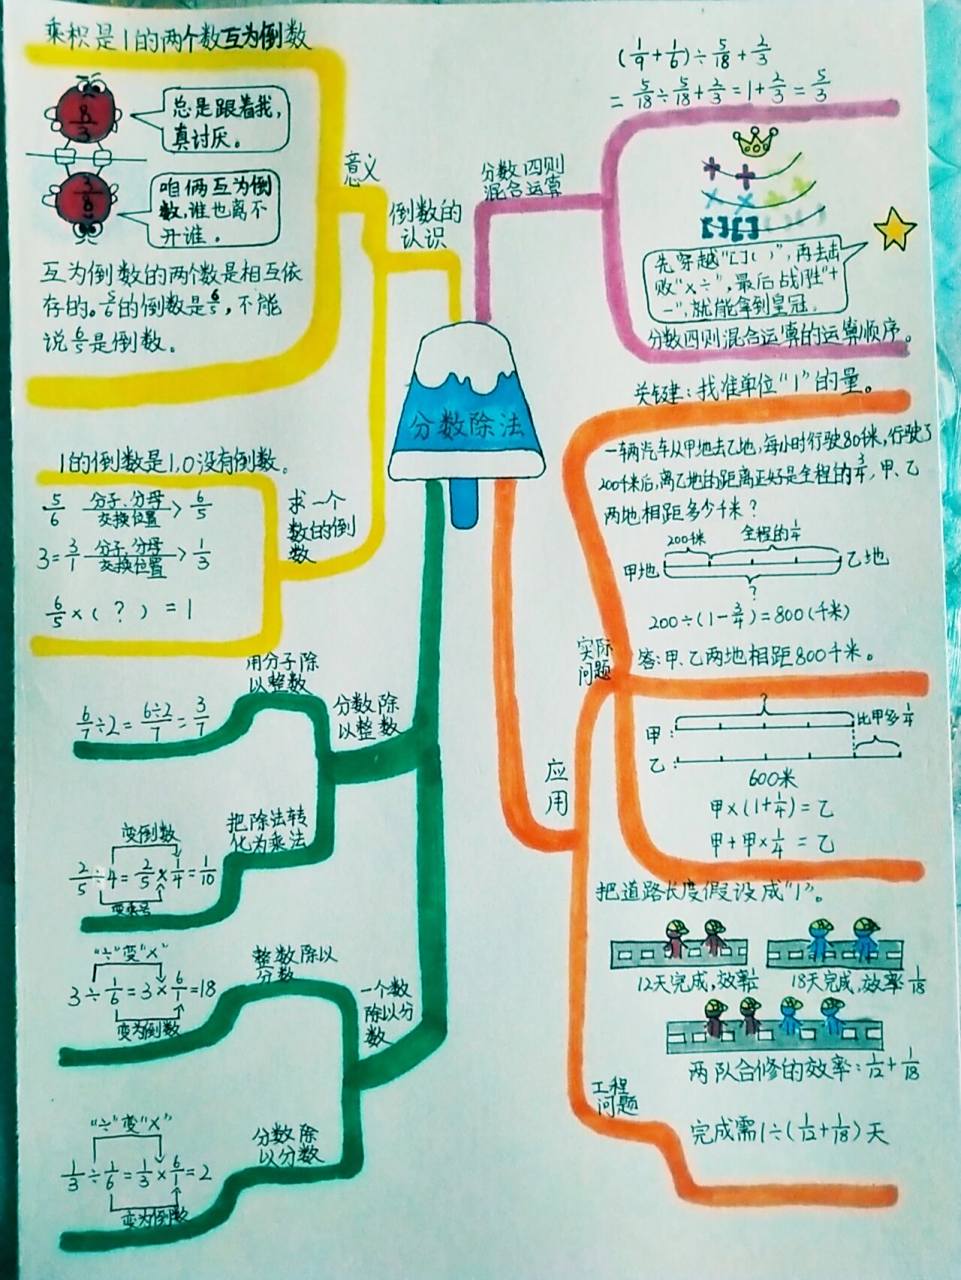 乘积是1的两个数互为倒数
8/3
总是跟着我,
真讨厌。
3/8
咱俩互为倒
数,谁也离不
开谁。
互为倒数的两个数是相互依
存的。5/6的倒数是6/5,不能
说6/5是倒数。
意义
倒数的
认识
1的倒数是1,0没有倒数。
5/6 分子、分母 交换位置 > 6/5
3=3/1 分子、分母 交换位置 > 1/3
6/5×(?)=1
求一个
数的倒
数
分数除法
用分子除
以整数
6/7÷2=6÷2/7=3/7
分数除
以整数
把除法转
化为乘法
变倒数
2/5÷4=2/5×1/4=1/10
变乘号
整数除以
分数
"÷"变"×"
3÷1/6=3×6/1=18
变为倒数
一个数
除以分
数
"÷"变"×"
分数除
以分数
1/3÷1/6=1/3×6/1=2
变为倒数
分数四则
混合运算
(1/9+1/6)÷5/18+2/3
=5/18÷5/18+2/3=1+2/3=5/3
+ +
× × ÷ ÷
[ ] [ ]
先穿越"[ ]( )",再去击
败"×÷",最后战胜"+
-",就能拿到皇冠。
分数四则混合运算的运算顺序。
关键:找准单位"1"的量。
一辆汽车从甲地去乙地,每小时行驶80千米,行驶了
200千米后,离乙地的距离正好是全程的3/4,甲、乙
两地相距多少千米?
200千米 全程的3/4
甲地 乙地
?
200÷(1-3/4)=800(千米)
答:甲、乙两地相距800千米。
实际
问题
?
甲: 比甲多1/4
乙:
600米
甲×(1+1/4)=乙
甲+甲×1/4=乙
应
用
把道路长度假设成"1"。
12天完成,效率1/12
18天完成,效率1/18
两队合修的效率:1/12+1/18
工程
问题
完成需1÷(1/12+1/18)天